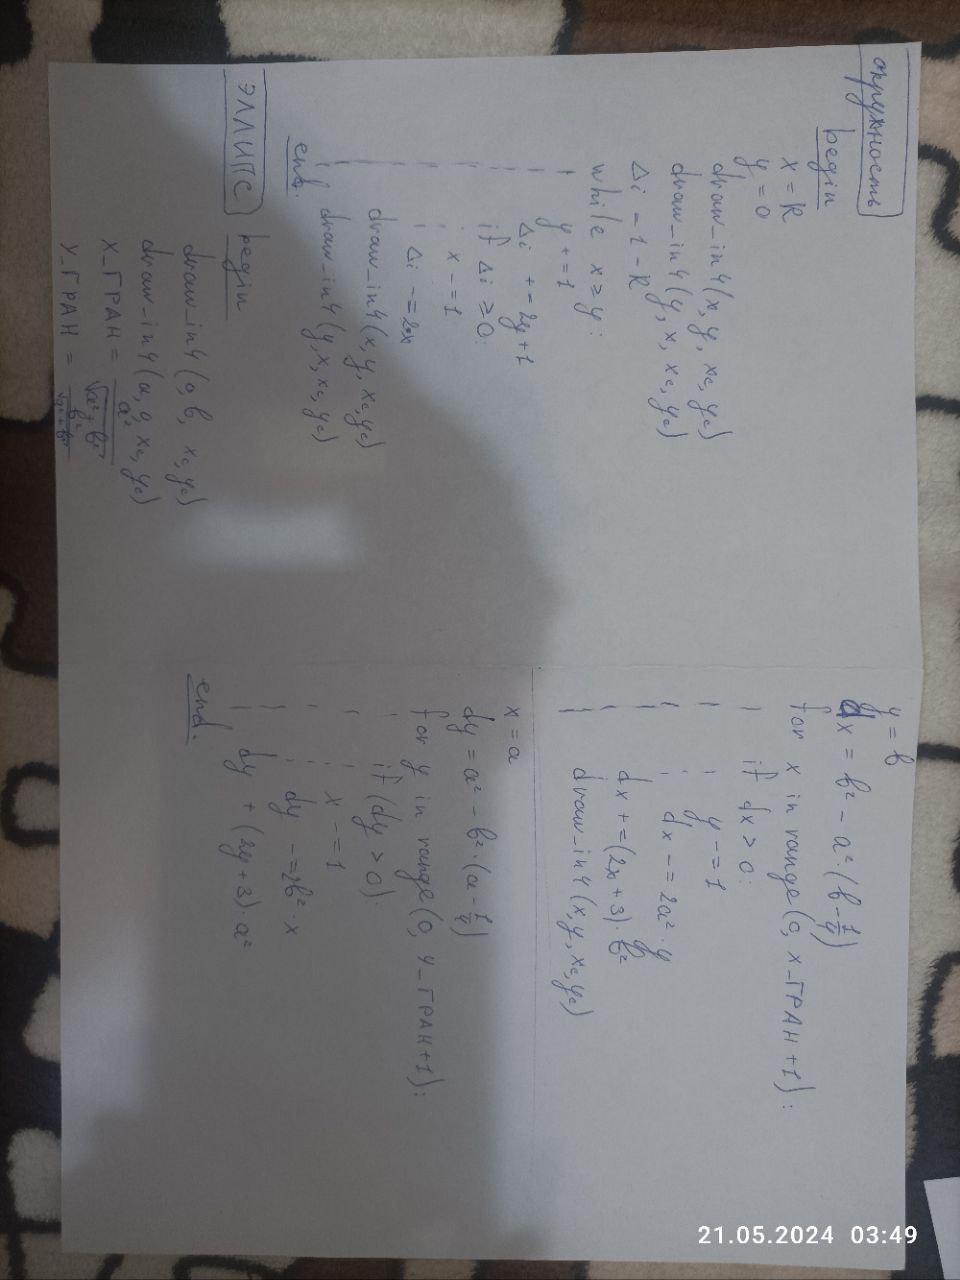 окружность
begin
x = R
y = 0
draw_in4(x, y, xc, yc)
draw_in4(y, x, xc, yc)
Δi = 1 - R
while x ≥ y:
y += 1
Δi += 2y+1
if Δi ≥ 0:
x -= 1
Δi -= 2x
draw_in4(x, y, xc, yc)
draw_in4(y, x, xc, yc)
end.
ЭЛЛИПС
begin
draw_in4(0, b, xc, yc)
draw_in4(a, 0, xc, yc)
X_ГРАН = a²/√(a²+b²)
Y_ГРАН = b²/√(a²+b²)
y = b
dx = b² - a²·(b - 1/4)
for x in range(0, x_ГРАН+1):
if dx > 0:
y -= 1
dx -= 2a²·y
dx += (2x+3)·b²
draw_in4(x, y, xc, yc)
x = a
dy = a² - b²·(a - 1/4)
for y in range(0, Y_ГРАН+1):
if (dy > 0):
x -= 1
dy -= 2b²·x
dy + (2y+3)·a²
end.
21.05.2024 03:49